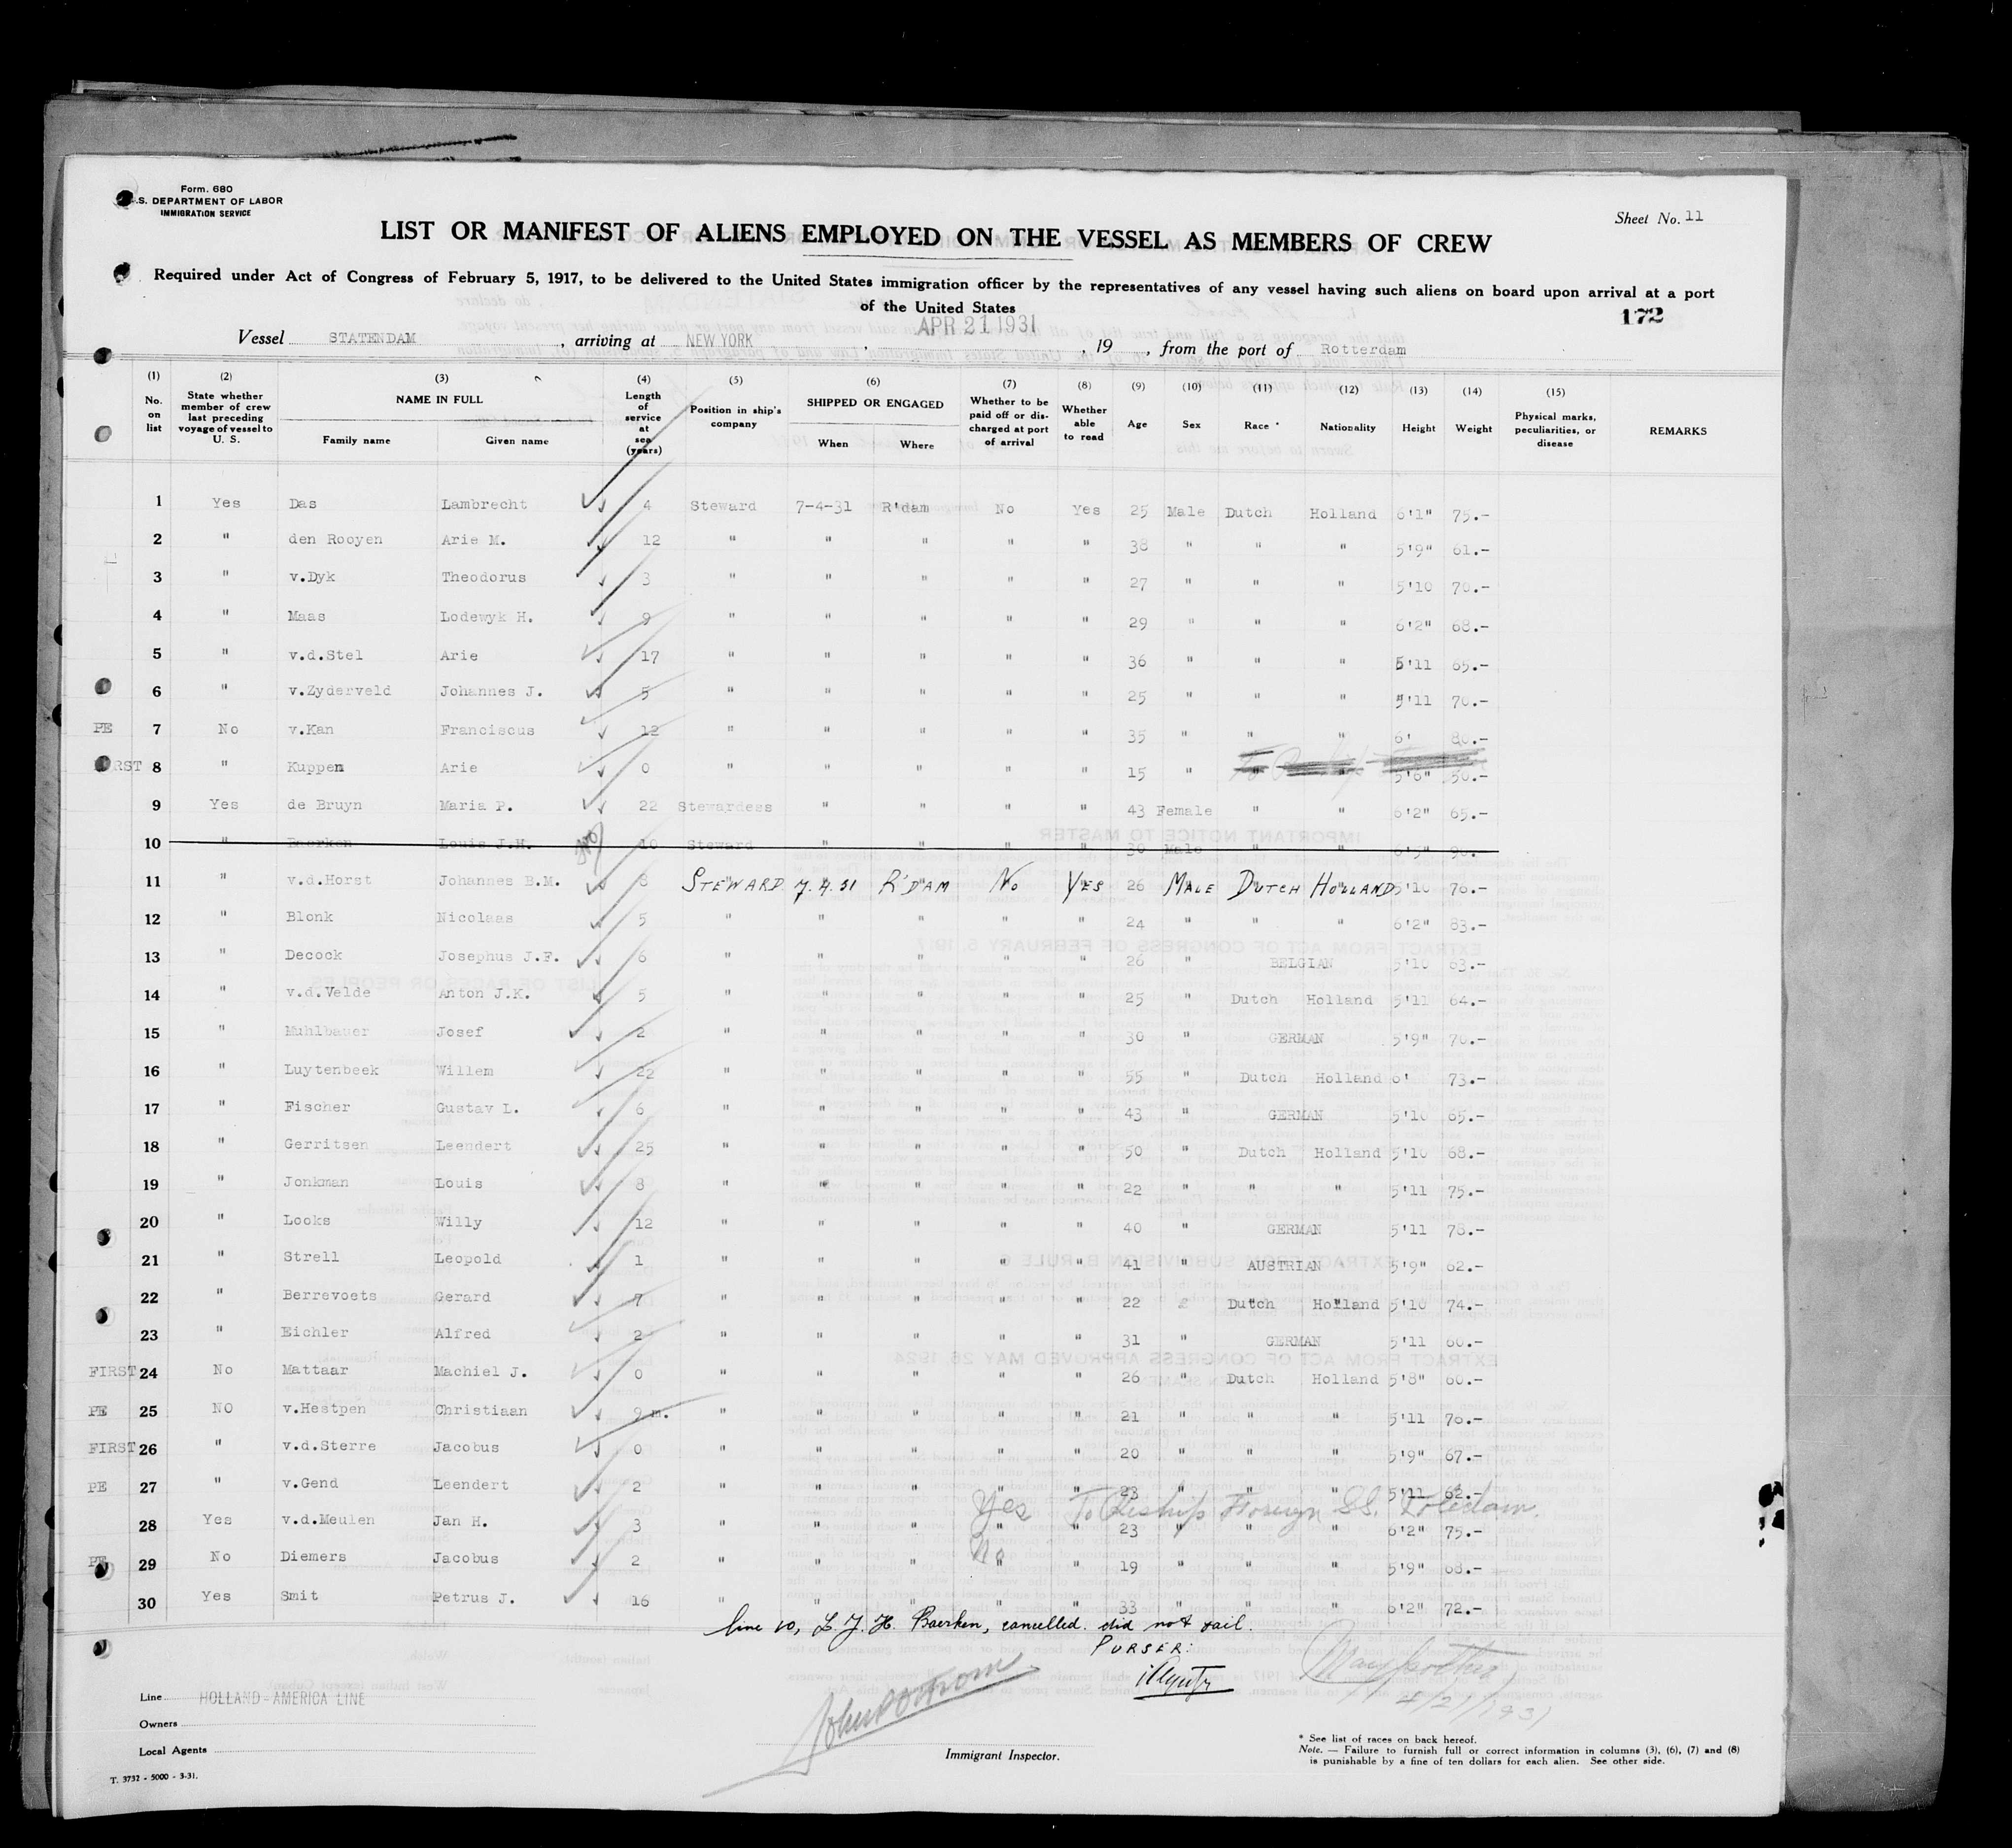 Form. 680
S. DEPARTMENT OF LABOR
IMMIGRATION SERVICE
Sheet No. 11
LIST OR MANIFEST OF ALIENS EMPLOYED ON THE VESSEL AS MEMBERS OF CREW
Required under Act of Congress of February 5, 1917, to be delivered to the United States immigration officer by the representatives of any vessel having such aliens on board upon arrival at a port
of the United States
172
APR 21 1931
Vessel STATENDAM, arriving at NEW YORK, , 19 , from the port of Rotterdam
(1) (2) (3) (4) (5) (6) (7) (8) (9) (10) (11) (12) (13) (14) (15)
No. on list State whether member of crew last preceding voyage of vessel to U. S. NAME IN FULL Family name Given name Length of service at sea (years) Position in ship's company SHIPPED OR ENGAGED When Where Whether to be paid off or discharged at port of arrival Whether able to read Age Sex Race * Nationality Height Weight Physical marks, peculiarities, or disease REMARKS
1 Yes Das Lambrecht 4 Steward 7-4-31 R'dam No Yes 25 Male Dutch Holland 6'1" 75.-
2 " den Rooyen Arie M. 12 " " " " " 38 " " " 5'9" 61.-
3 " v.Dyk Theodorus 3 " " " " " 27 " " " 5'10 70.-
4 " Maas Lodewyk H. 9 " " " " " 29 " " " 6'2" 68.-
5 " v.d.Stel Arie 17 " " " " " 36 " " " 5'11 65.-
6 " v.Zyderveld Johannes J. 5 " " " " " 25 " " " 5'11 70.-
PE 7 No v.Kan Franciscus 12 " " " " " 35 " " " 6' 80.-
FIRST 8 " Kuppen Arie 0 " " " " " 15 " " " 5'6" 50.-
9 Yes de Bruyn Maria P. 22 Stewardess " " " " 43 Female " " 6'2" 65.-
10 " Baerken Louis J.H. 10 Steward " " " " 30 Male " " 6'5" 90.-
11 " v.d.Horst Johannes B.M. 8 STEWARD 7.4.31 R'DAM No YES 26 MALE DUTCH HOLLAND 5'10 70.-
12 " Blonk Nicolaas 5 " " " " " 24 " " " 6'2" 83.-
13 " Decock Josephus J.F. 6 " " " " " 26 " BELGIAN 5'10 63.-
14 " v.d.Velde Anton J.K. 5 " " " " " 25 " Dutch Holland 5'11 64.-
15 " Muhlbauer Josef 2 " " " " " 30 " GERMAN 5'9" 70.-
16 " Luytenbeek Willem 22 " " " " " 55 " Dutch Holland 6' 73.-
17 " Fischer Gustav L. 6 " " " " " 43 " GERMAN 5'10 65.-
18 " Gerritsen Leendert 25 " " " " " 50 " Dutch Holland 5'10 68.-
19 " Jonkman Louis 8 " " " " " 22 " " " 5'11 75.-
20 " Looks Willy 12 " " " " " 40 " GERMAN 5'11 78.-
21 " Strell Leopold 1 " " " " " 41 " AUSTRIAN 5'9" 62.-
22 " Berrevoets Gerard 7 " " " " " 22 " Dutch Holland 5'10 74.-
23 " Eichler Alfred 2 " " " " " 31 " GERMAN 5'11 60.-
FIRST 24 No Mattaar Machiel J. 0 " " " " " 26 " Dutch Holland 5'8" 60.-
PE 25 NO v.Hestpen Christiaan 9 m. " " " " " 21 " " " 5'11 70.-
FIRST 26 " v.d.Sterre Jacobus 0 " " " " " 20 " " " 5'9" 67.-
PE 27 " v.Gend Leendert 2 " " " " " 23 " " " 5'11 62.-
Yes To Reship Foreign SS.
28 Yes v.d.Meulen Jan H. 3 " " " " " 23 " " " 6'2" 75.-
PE 29 No Diemers Jacobus 2 " " " No " 19 " " " 5'9" 68.-
30 Yes Smit Petrus J. 16 " " " " " 33 " " " 6'2" 72.-
line 10, L. J. H. Baerken, cancelled. did not sail.
PURSER:
4/21/1931
Line HOLLAND-AMERICA LINE
Owners
Local Agents
Immigrant Inspector.
* See list of races on back hereof.
Note. — Failure to furnish full or correct information in columns (3), (6), (7) and (8)
is punishable by a fine of ten dollars for each alien. See other side.
T. 3732 - 5000 - 3-31.